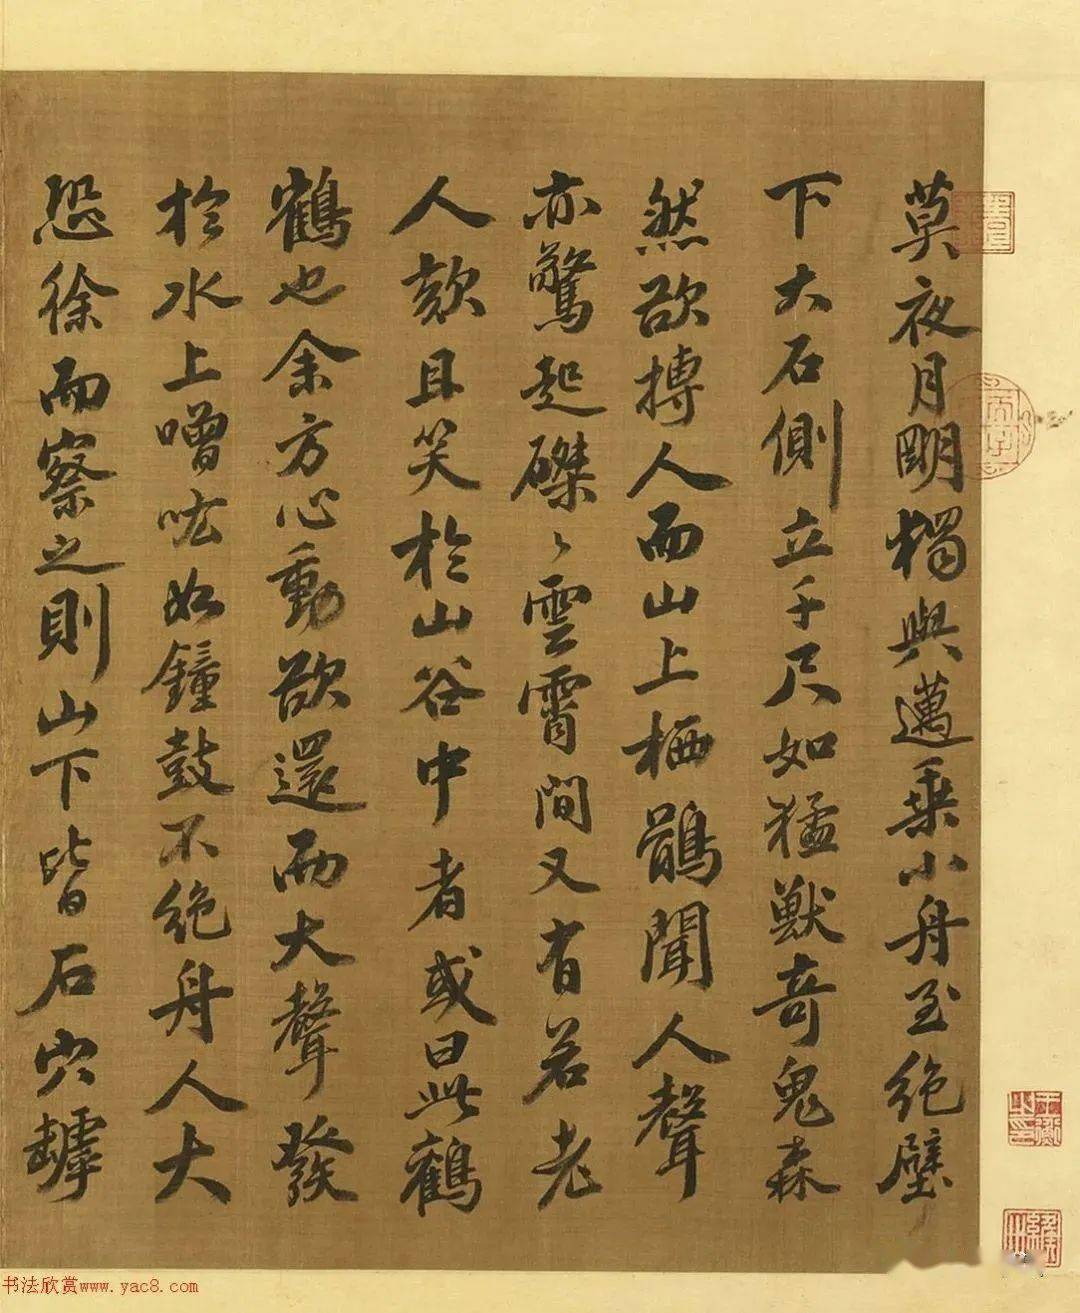 莫夜月明獨與邁乗小舟至絶壁
下大石側立千尺如猛獸奇鬼森
然欲搏人而山上栖鶻聞人聲
亦驚起磔々雲霄間又有若老
人欬且笑於山谷中者或曰此鸛
鶴也余方心動欲還而大聲發
於水上噌吰如鐘鼓不絶舟人大
恐徐而察之則山下皆石穴罅
书法欣赏www.yac8.com